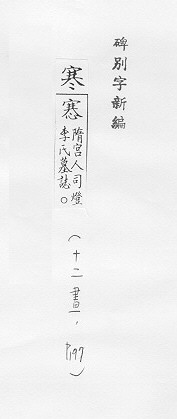 碑別字新編
寒
寒 隋宮人司燈
李氏墓誌。
(十二畫,P197)